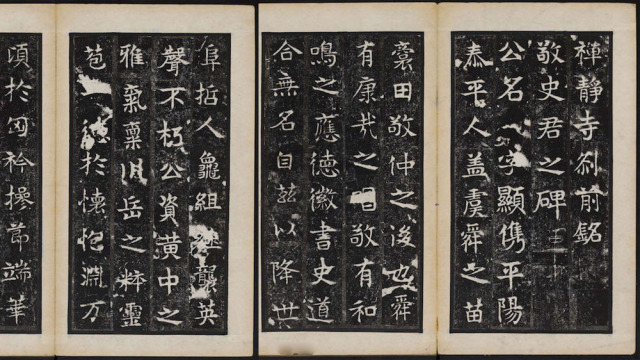 禪靜寺刹前銘
敬史君之碑
公名字顯儁平陽
泰平人盖虞舜之苗
裔田敬仲之後也舜
有康哉之唱敬有和
鳴之應德徽書史道
合無名自玆以降世
阜哲人龜組继襲英
聲不朽公資黄中之
雅氣稟川岳之粹靈
苞一德於懷抱淵万
頃於匈衿操節端華